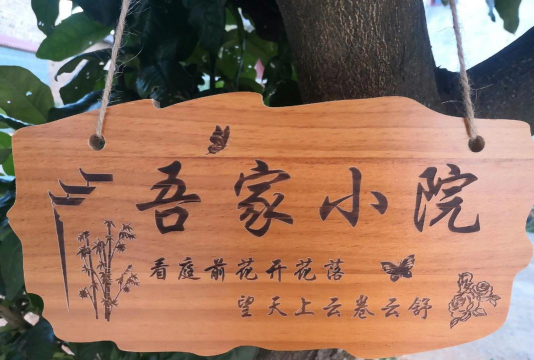 吾家小院
看庭前花开花落
望天上云卷云舒